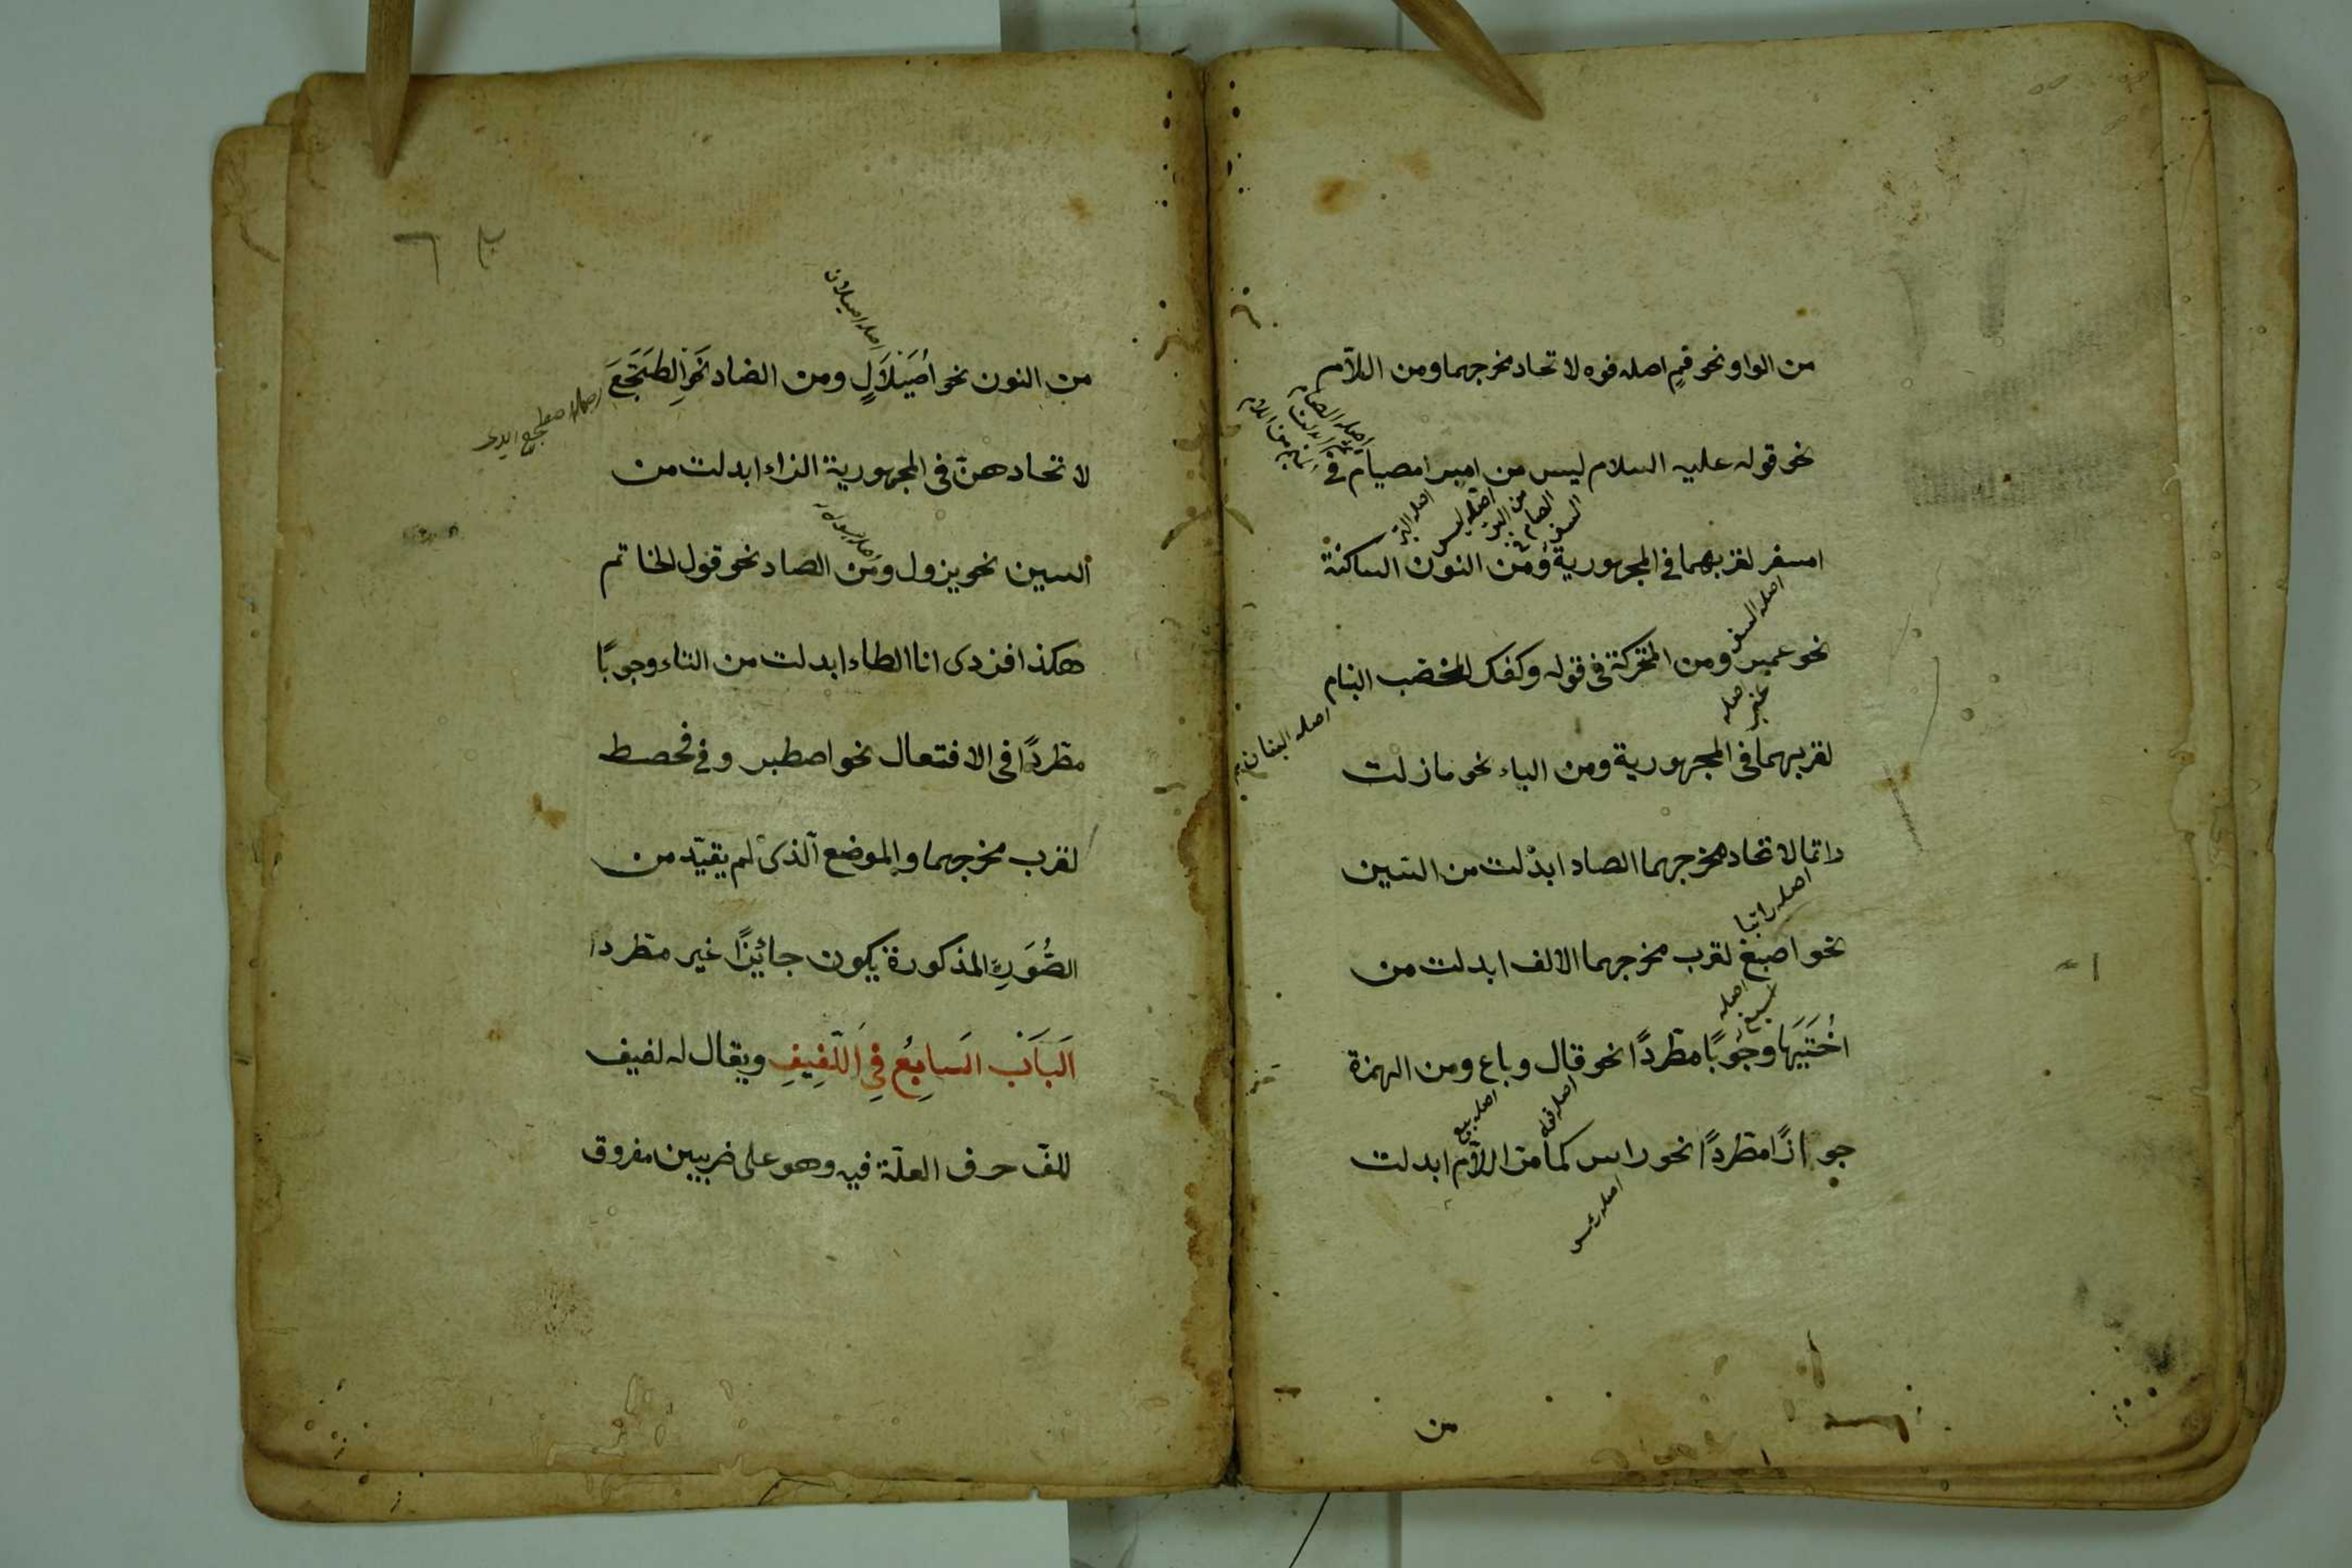 من الواو نحو فم اصله فوه لاتحاد مخرجهما ومن اللّام
نحو قوله عليه السلام ليس من امبر امصيام في
امسفر لقربهما في المجهورية ومن النون الساكنة
نحو عمبر ومن المتحركة في قوله وكفك المخضب البنام
لقربهما في المجهورية ومن الباء نحو مازلت
راتما لاتحاد مخرجهما الصاد ابدلت من السين
نحو اصبغ لقرب مخرجهما الالف ابدلت من
اُخَتَيهَا وجُوبًا مطّردًا نحو قال وباع ومن الهمزة
جوازًا مطّردًا نحو راس كما مرّ اللّام ابدلت
اصله السفر
اصله البنان
اصله عنبر
اصله راتبا
اصله اسبغ
اصله بيع
اصله رءس
من
من النون نحو اُصَيْلَالٍ ومن الضاد نَحْوَ اِلطَجَعَ
لاتحادهنّ في المجهورية الزاء ابدلت من
السين نحو يزول ومن الصاد نحو قول الخاتم
هكذا فزدى انا الطاء ابدلت من التاء وجوبًا
مطّردًا في الافتعال نحو اصطبر وفي فحصط
لقرب مخرجهما والموضع الّذى لم يقيّد من
الصُّوَرِ المذكورة يكون جائزًا غير مطّردا
اَلبَابُ السَابِعُ فِي اَللَّفِيفِ ويقال له لفيف
للفّ حرف العلّة فيه وهو على ضربين مفروق
اصله اصيلان